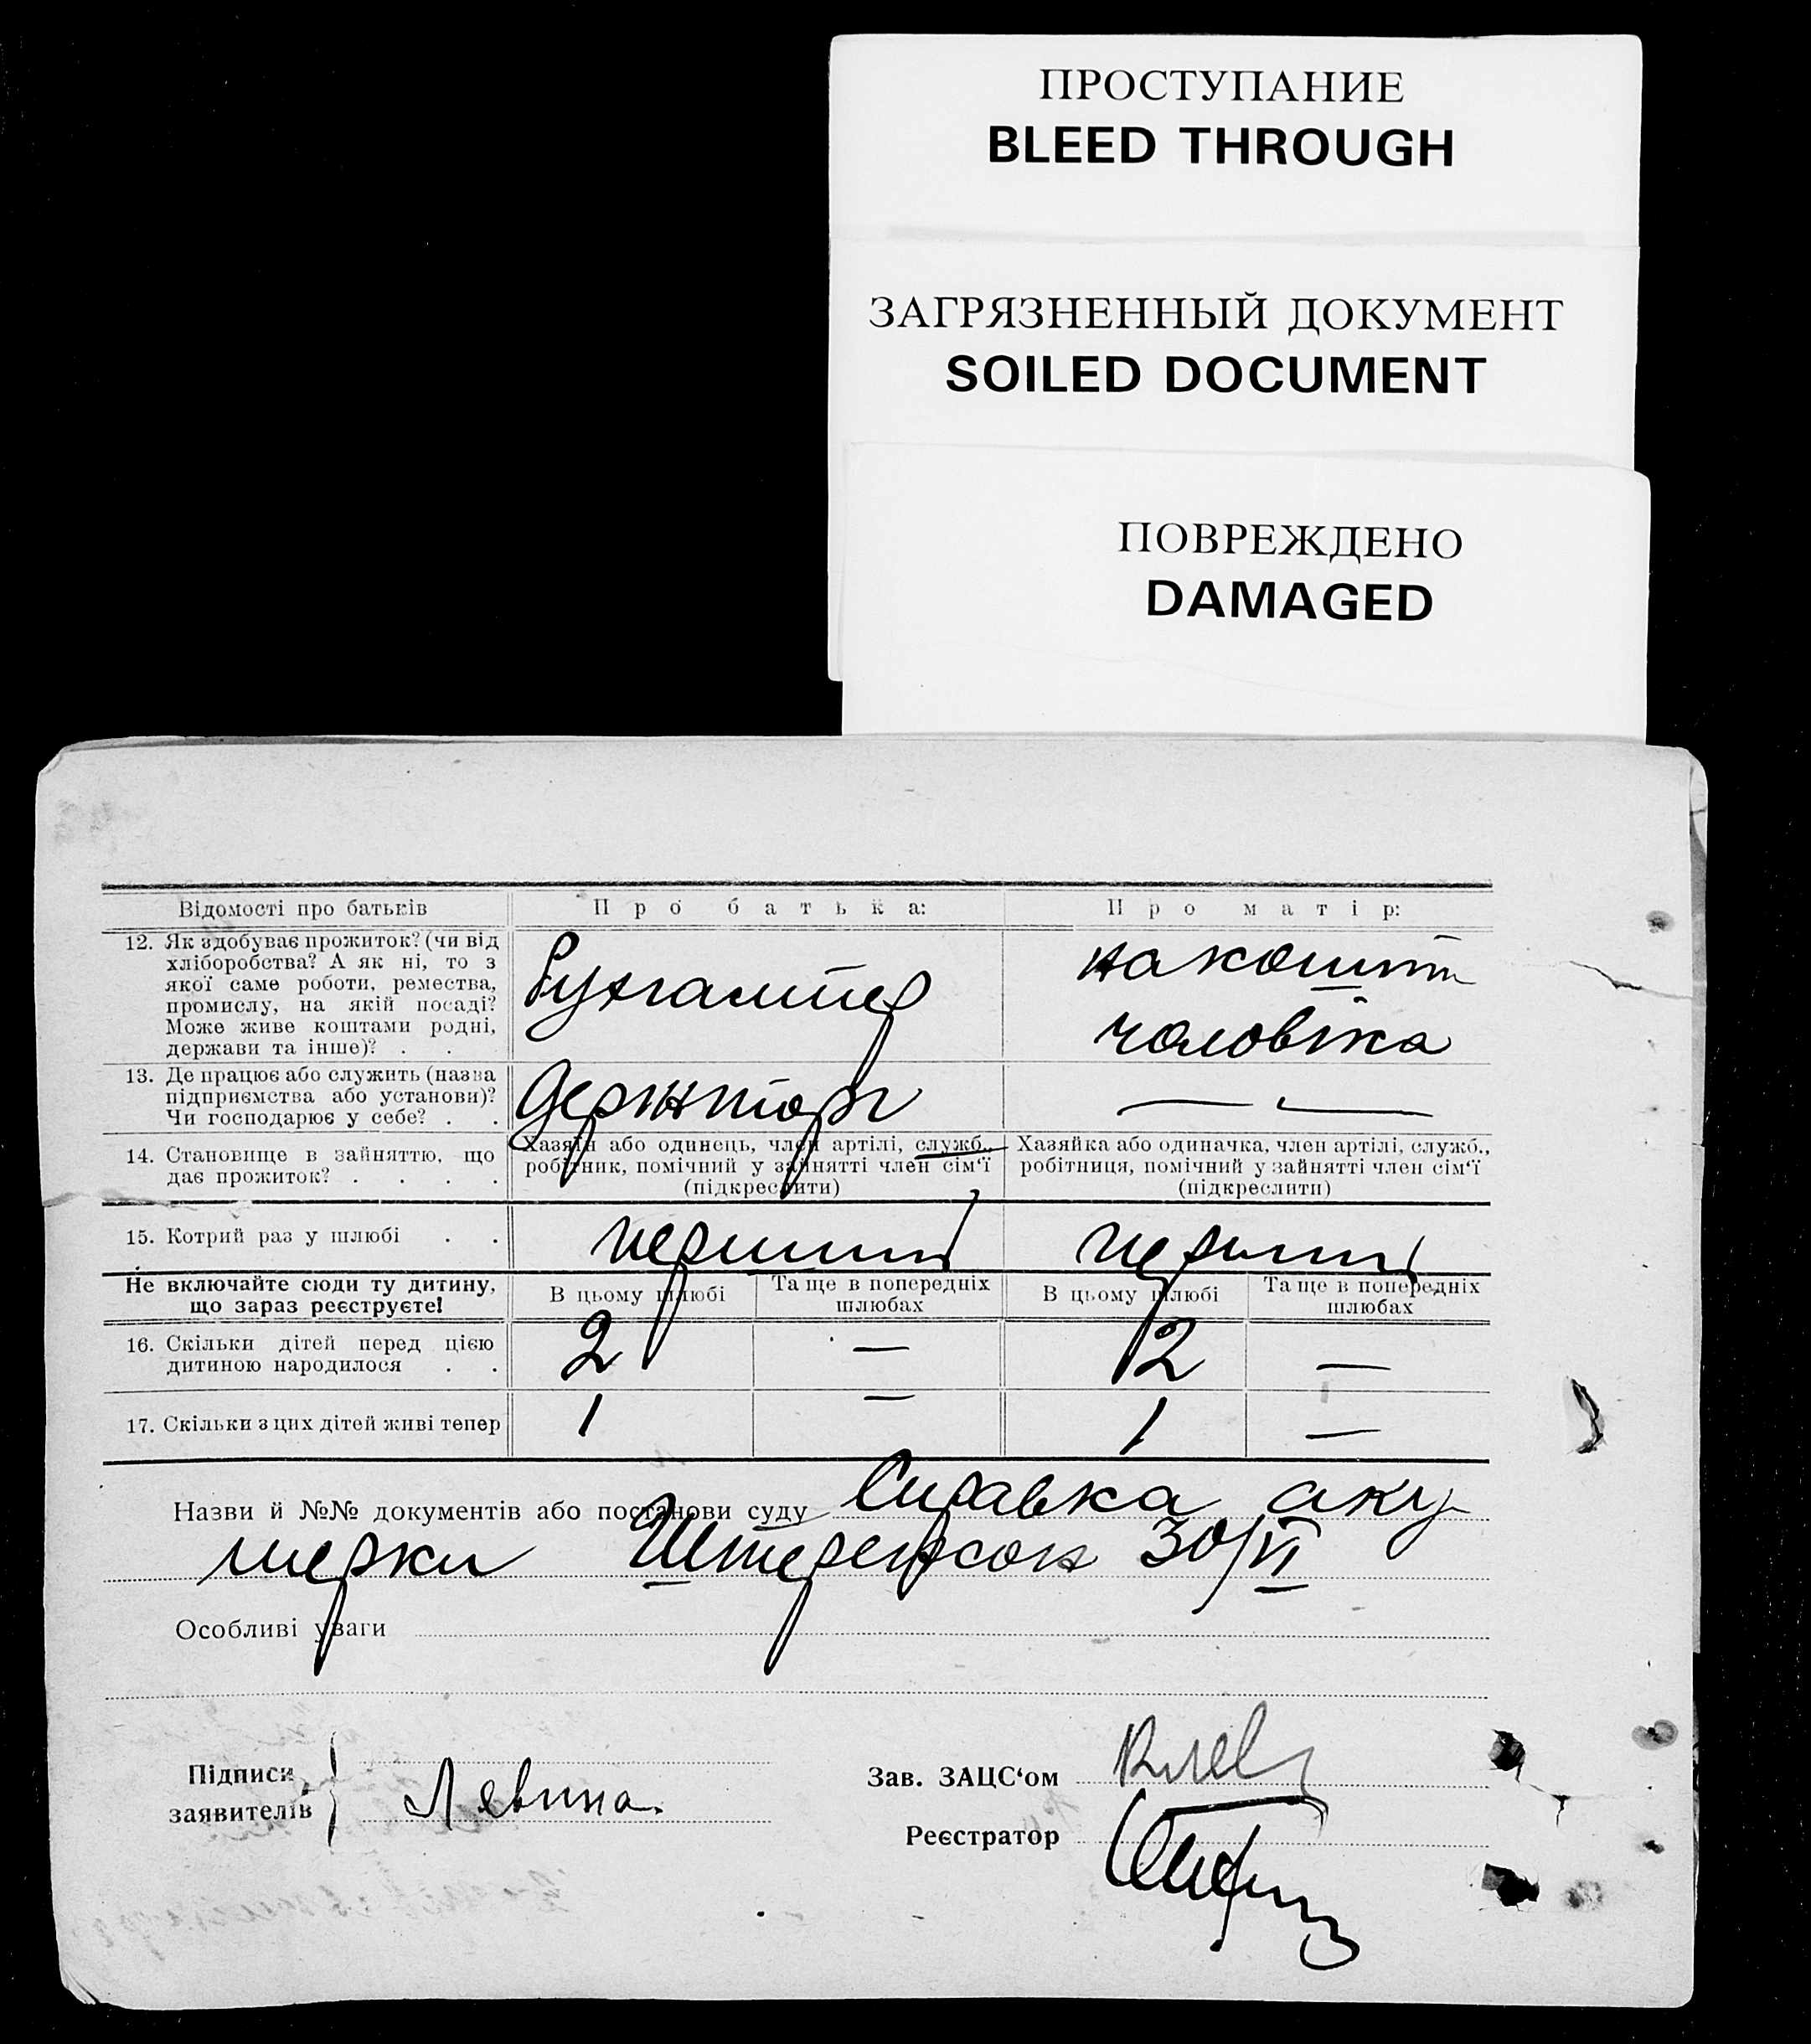 ПРОСТУПАНИЕ
BLEED THROUGH
ЗАГРЯЗНЕННЫЙ ДОКУМЕНТ
SOILED DOCUMENT
ПОВРЕЖДЕНО
DAMAGED
Відомості про батьків
Про батька:
Про матір:
12. Як здобуває прожиток? (чи від
хліборобства? А як ні, то з
якої саме роботи, ремества,
промислу, на якій посаді?
Може живе коштами родні,
держави та інше)? . .
Бухгалтер
на кошти
чоловіка
13. Де працює або служить (назва
підприємства або установи)?
Чи господарює у себе? . .
Держторг
— —
14. Становище в зайняттю, що
дає прожиток? . . . .
Хазяїн або одинець, член артілі, служб.,
робітник, помічний у зайнятті член сім'ї
(підкреслити)
Хазяйка або одиначка, член артілі, служб.,
робітниця, помічний у зайнятті член сім'ї
(підкреслити)
15. Котрий раз у шлюбі . .
перший
перший
Не включайте сюди ту дитину,
що зараз реєструєте!
В цьому шлюбі
Та ще в попередніх
шлюбах
В цьому шлюбі
Та ще в попередніх
шлюбах
16. Скільки дітей перед цією
дитиною народилося . .
2
—
2
—
17. Скільки з цих дітей живі тепер
1
—
1
—
Назви й №№ документів або постанови суду Справка аку
шерки 30/VI
Особливі уваги
Підписи
заявителів
Левина
Зав. ЗАЦС'ом
Реєстратор